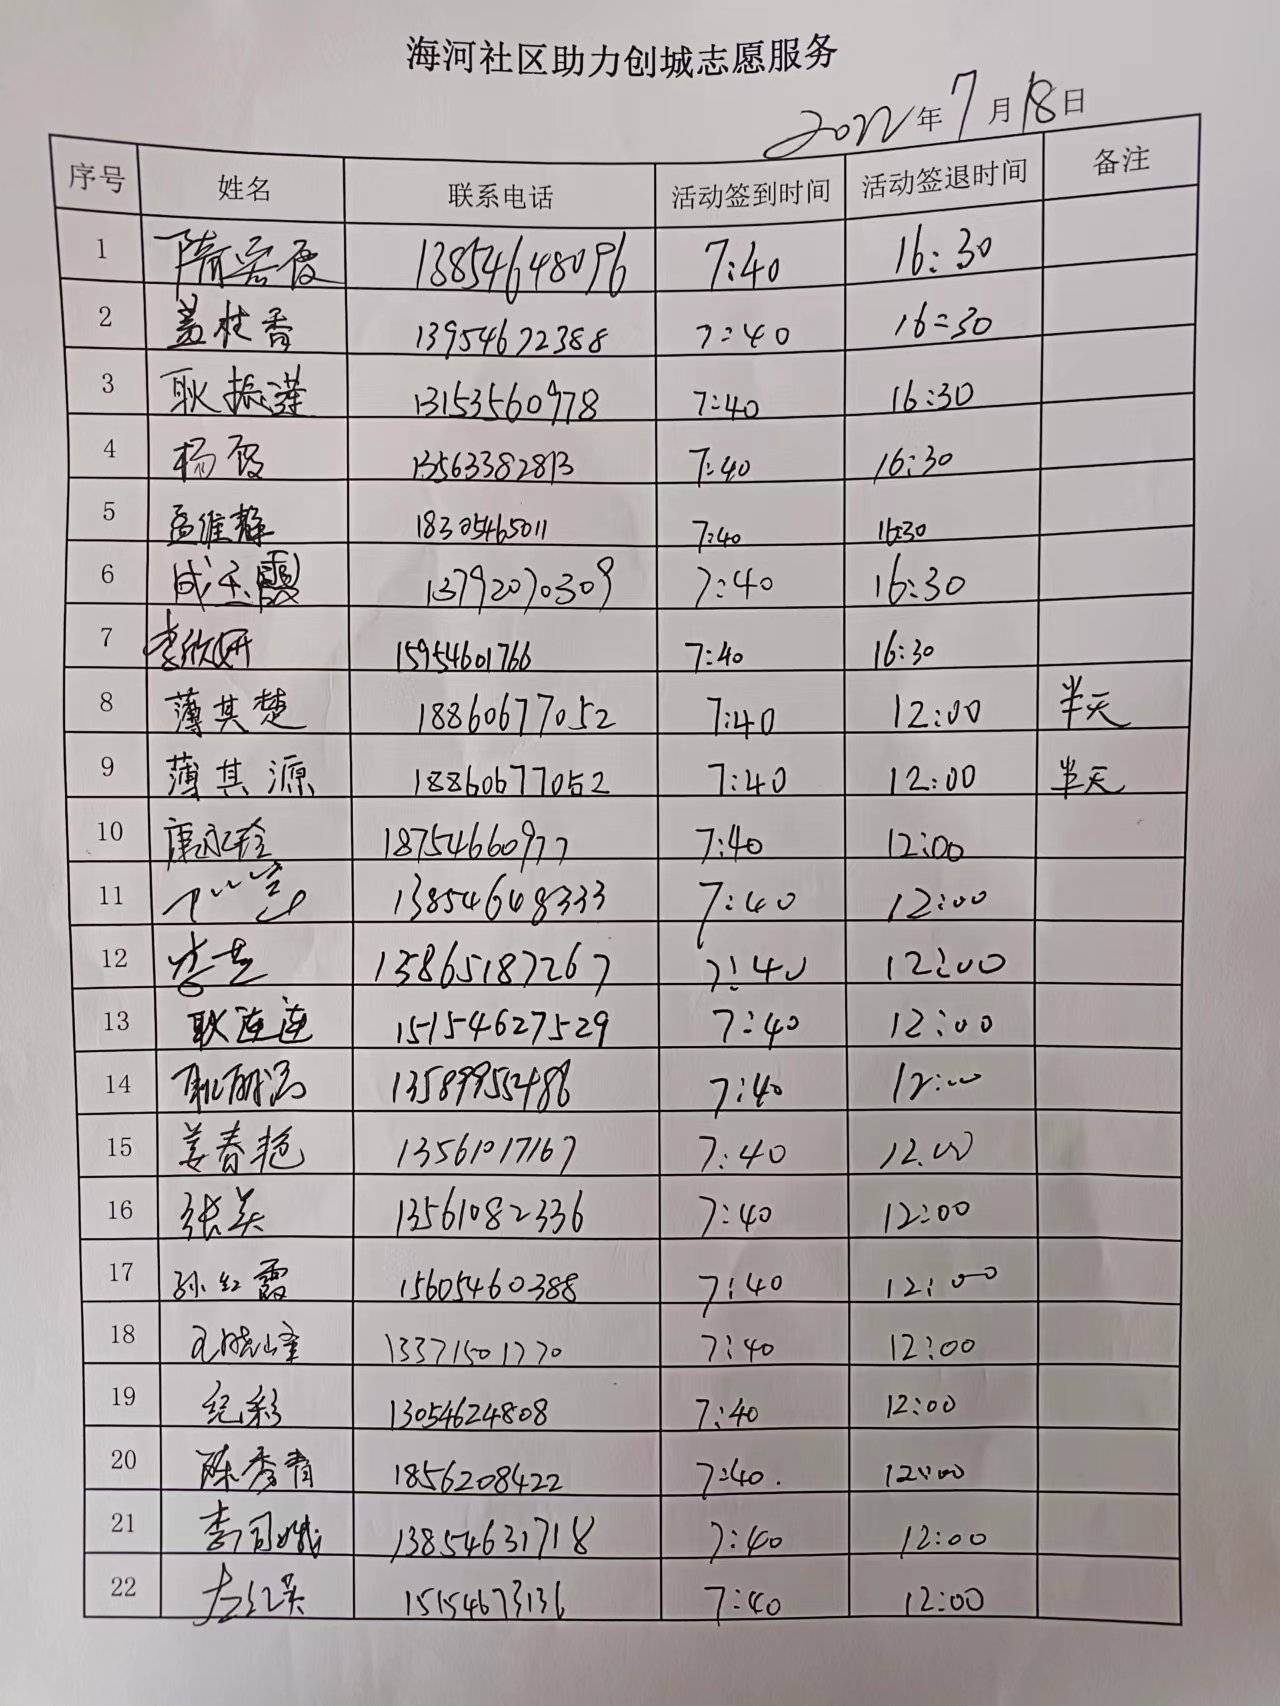 海河社区助力创城志愿服务
2022年7月18日
序号 姓名 联系电话 活动签到时间 活动签退时间 备注
1 13854648096 7:40 16:30
2 盖桂香 13954672388 7:40 16:30
3 耿振莲 13153560978 7:40 16:30
4 杨霞 13563382813 7:40 16:30
5 孟维静 18305465011 7:40 16:30
6 成玉霞 13792070309 7:40 16:30
7 李欣妍 15954601766 7:40 16:30
8 薄其楚 18860677052 7:40 12:00 半天
9 薄其源 18860677052 7:40 12:00 半天
10 康永玲 18754660977 7:40 12:00
11 13854648333 7:40 12:00
12 13865187267 7:40 12:00
13 耿连连 15154627529 7:40 12:00
14 13589955486 7:40 12:00
15 姜春艳 13561017167 7:40 12:00
16 张英 13561082336 7:40 12:00
17 孙红霞 15605460388 7:40 12:00
18 孔晓峰 13371501770 7:40 12:00
19 纪彩 13054624808 7:40 12:00
20 陈秀青 1856208422 7:40 12:00
21 李司娥 13854631718 7:40 12:00
22 左红英 15154673136 7:40 12:00